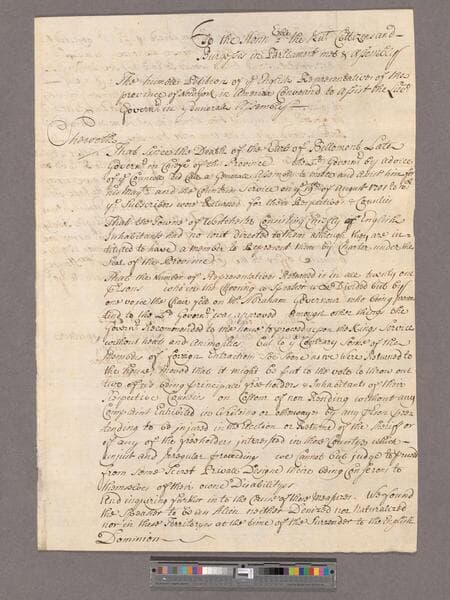 To the Honn ble the Knts Cittizens and
Burgesses in Parliament mett & Assembled
The humble Petition of ye Representatives of the
province of in America Convened to assist the Lieut
Governr in Generall Assembly
Sheweth
That Since the Death of the Earle of Bellomont Late
Governr in Cheife of this Province the Lt Governr by advice
of ye Councill did Call a Generall Assembly to meete and
his Majty and the Countries Service on ye of August 1701 to wch
ye Subscribers were Returned for their Respective Counties
That the Towne of Westchester Consisting Cheifly of English
Inhabitants had no writt directed to them although they are in
tituled to have a member to Represent them by Charter under the
Seal of the Province
That the Number of Representatives Returned is in all twenty one
persons who in the Choosing a Speaker were Divided but by
one voice the Choice fell on Mr Abraham Governeur who being presen
ted to the Lt Governr was approved amongst other things the
Governr Recommended to the house to proceed upon the Kings Service
without heats and animosities but to ye Contrary Some of the
Members of forreign Extraction Soe Soone as we were Returned to
the house moved that it might be put to the vote to throw out
two of us being principall freeholders & Inhabitants of their
Respective Counties on of non Residing without any
Complaint Exhibited in Writeing or otherwayes by any person preten
tending to be injured in the Election or Return of the Sheriff or
of any of the freeholders interested in those Counties which
unjust and Irregular proceeding we cannot but judge to proceed
from Some Secret Private Designe there being Conscious to
themselves of their owne Disabilitys
And inquiring further in to the Cause of these measures We found
the Speaker to be an Alien neither Denized nor Naturalized
nor in these Territoryes at the time of the Surrender to the English
Dominion